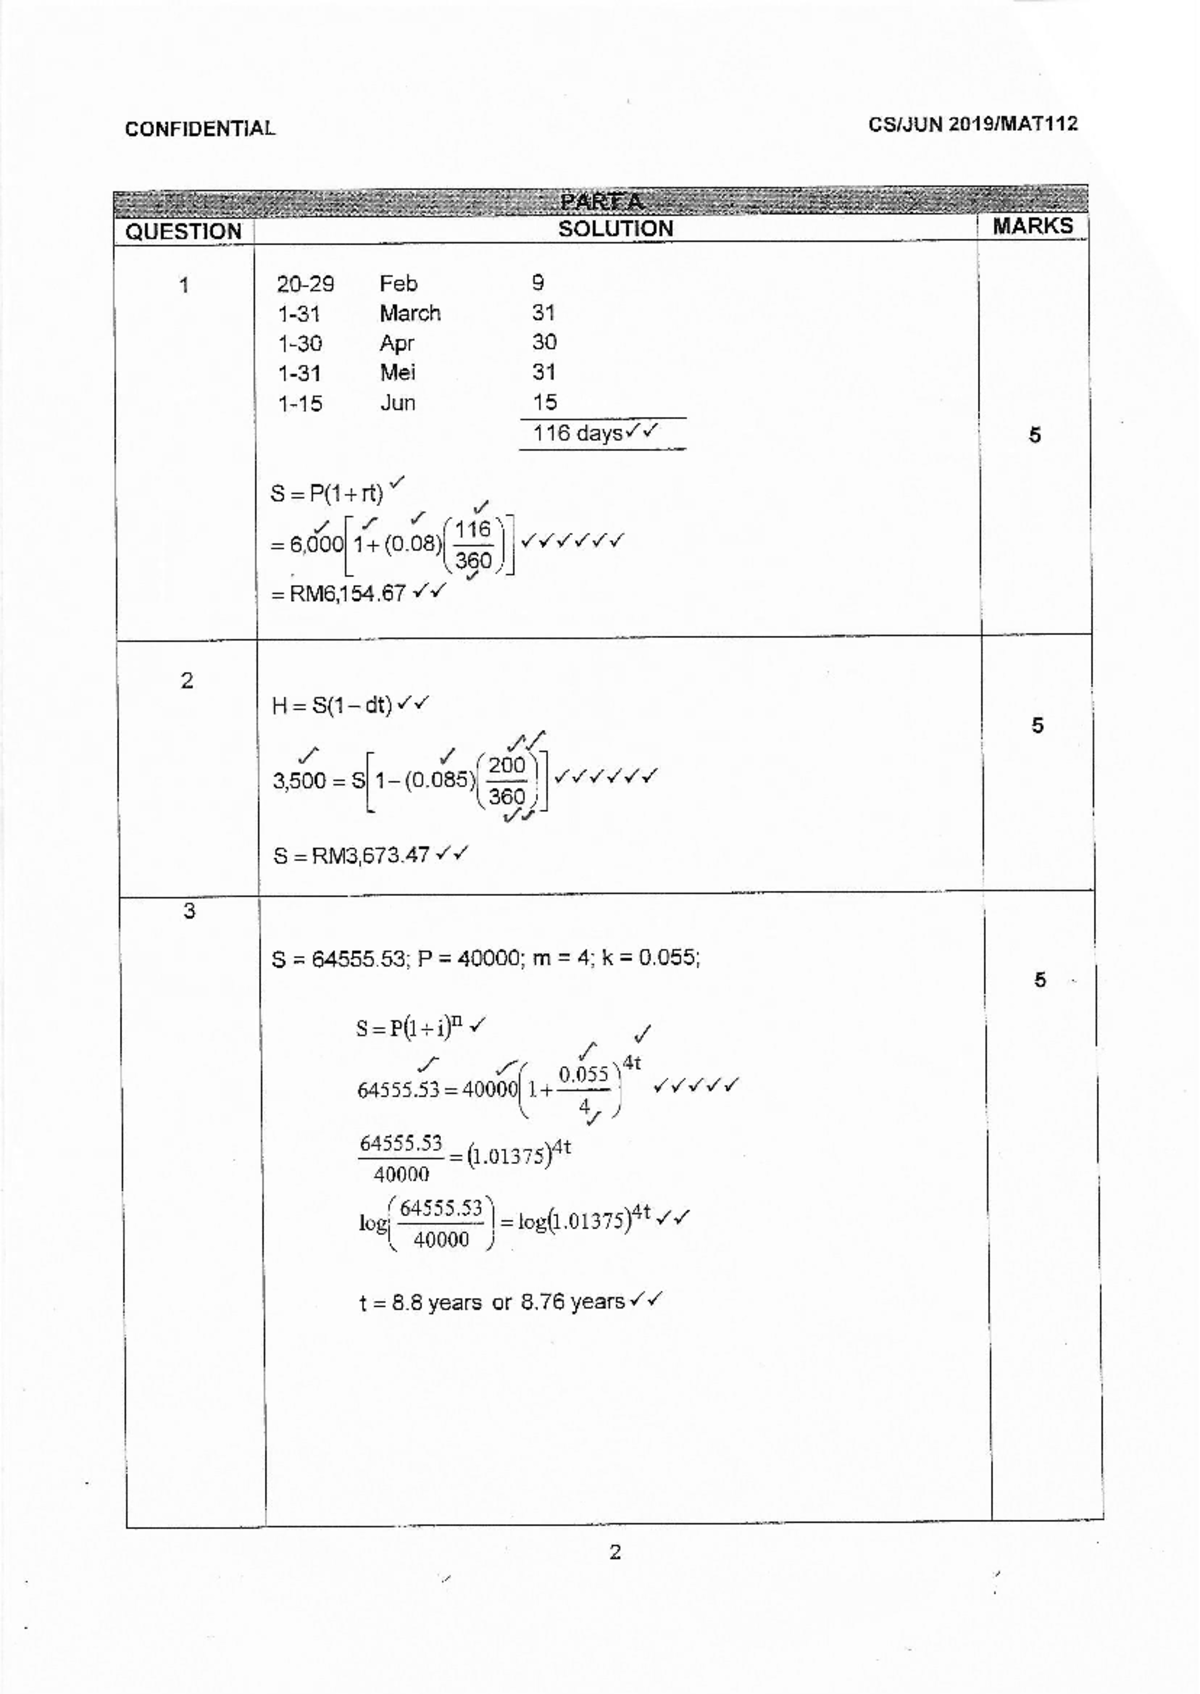 CONFIDENTIAL
CS/JUN 2019/MAT112
PART A
QUESTION SOLUTION MARKS
1
20-29 Feb 9
1-31 March 31
1-30 Apr 30
1-31 Mei 31
1-15 Jun 15
116 days✓✓
5
S = P(1 + rt) ✓
= 6,000[1 + (0.08)(116/360)] ✓✓✓✓✓✓
= RM6,154.67 ✓✓
2
H = S(1 – dt) ✓✓
5
3,500 = S[1 – (0.085)(200/360)] ✓✓✓✓✓✓
S = RM3,673.47 ✓✓
3
S = 64555.53; P = 40000; m = 4; k = 0.055;
5
S = P(1 + i)^n ✓
64555.53 = 40000(1 + 0.055/4)^4t ✓✓✓✓✓
64555.53/40000 = (1.01375)^4t
log(64555.53/40000) = log(1.01375)^4t ✓✓
t = 8.8 years or 8.76 years ✓✓
2